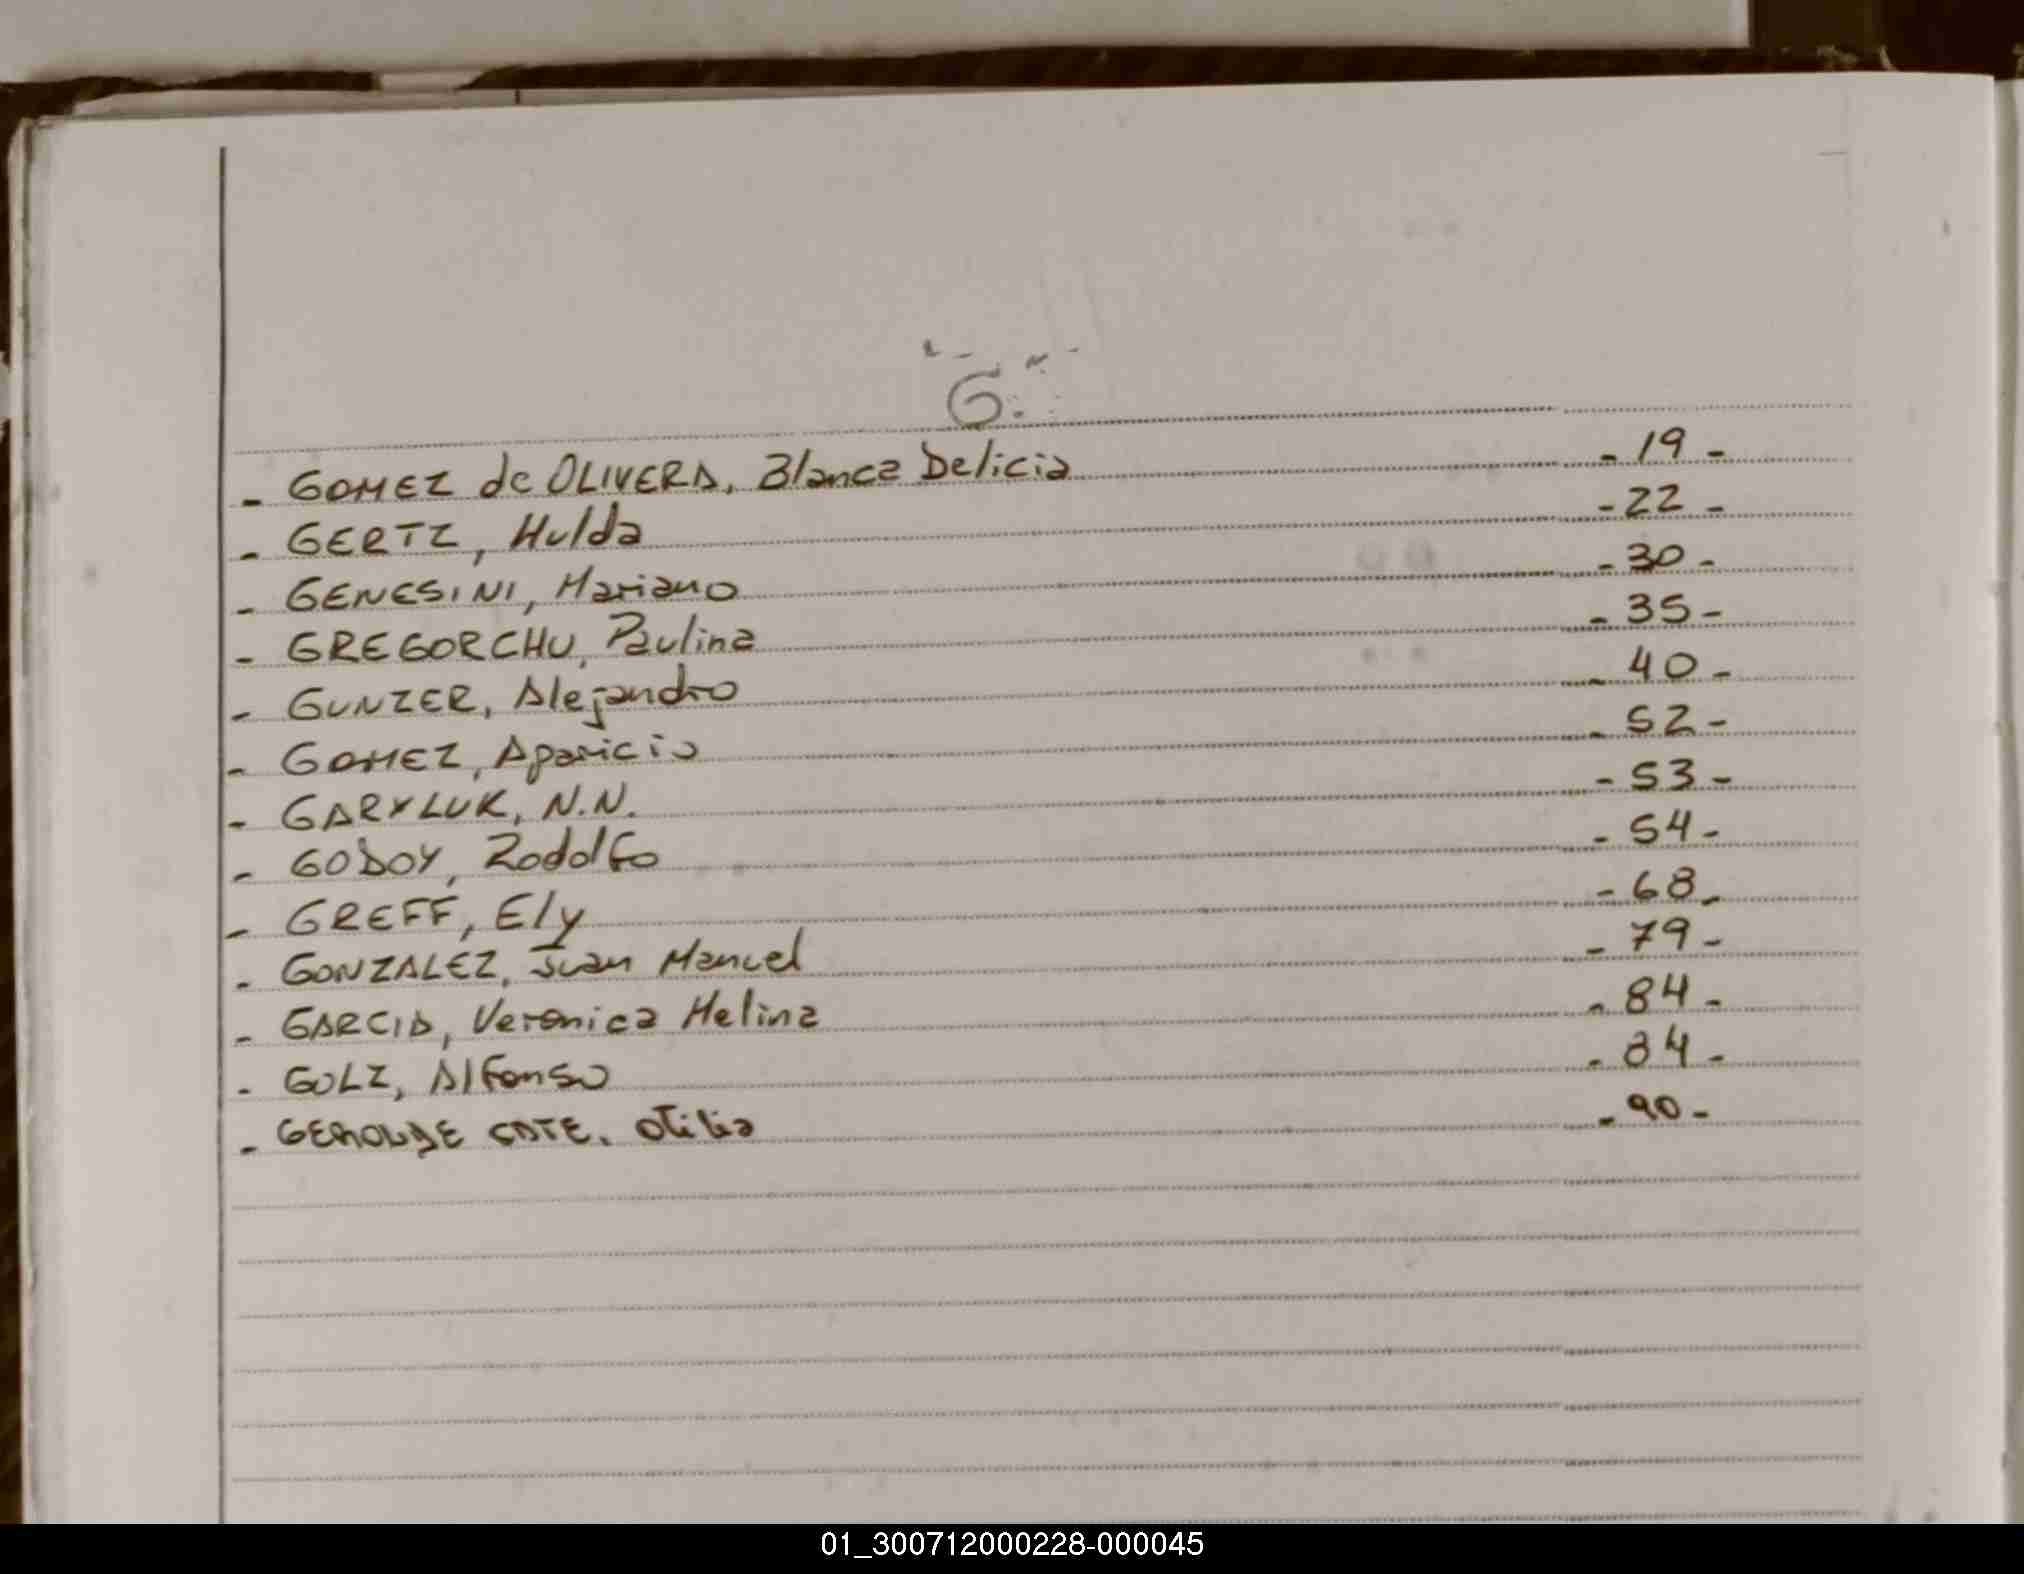 G.
- GOMEZ de OLIVERA, Blanca Delicia - 19 -
- GERTZ, Hulda - 22 -
- GENESINI, Mariano - 30 -
- GREGORCHU, Paulina - 35 -
- GUNZER, Alejandro - 40 -
- GOMEZ, Aparicio - 52 -
- GARYLUK, N.N. - 53 -
- GODOY, Rodolfo - 54 -
- GREFF, Ely - 68 -
- GONZALEZ, Juan Manuel - 79 -
- GARCIA, Veronica Melina - 84 -
- GOLZ, Alfonso - 84 -
- Otilia - 90 -
01_300712000228-000045